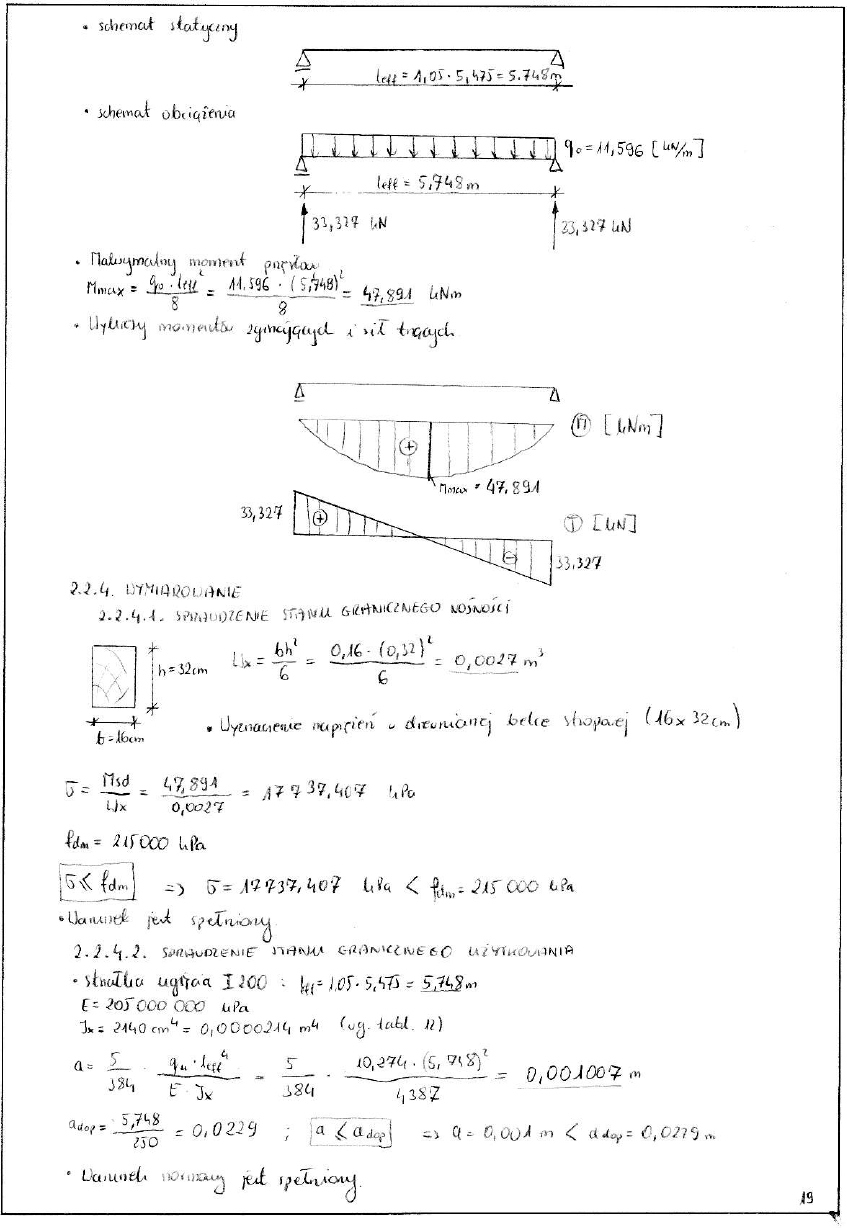 • schemat statyczny
leff = 1,05 · 5,475 = 5.748m
• schemat obciążenia
q₀ = 11,596 [kN/m]
leff = 5,748 m
33,327 kN 33,327 kN
• Maksymalny moment przęsłow
Mmax = q₀·leff²/8 = 11,596·(5,748)²/8 = 47,891 kNm
• Wykresy momentów zginających i sił tnących
M [kNm]
Mmax = 47,891
33,327 + T [kN]
- 33,327
2.2.4. WYMIAROWANIE
2.2.4.1. SPRAWDZENIE STANU GRANICZNEGO NOŚNOŚCI
h = 32cm Wx = bh²/6 = 0,16·(0,32)²/6 = 0,0027 m³
b = 16cm • Wyznaczenie naprężeń w drewnianej belce stropowej (16x32cm)
σ = Msd/Wx = 47,891/0,0027 = 17737,407 kPa
fdm = 215000 kPa
σ ≤ fdm => σ = 17737,407 kPa < fdm = 215 000 kPa
• Warunek jest spełniony.
2.2.4.2. SPRAWDZENIE STANU GRANICZNEGO UŻYTKOWANIA
• strzałka ugięcia I200 : leff = 1,05·5,475 = 5,748m
E = 205 000 000 kPa
Jx = 2140 cm⁴ = 0,0000214 m⁴ (wg. tabl. 12)
a = 5/384 · qk·leff⁴/E·Jx = 5/384 · 10,274·(5,748)²/4387 = 0,001007 m
adop = 5,748/250 = 0,0229 ; a ≤ adop => a = 0,001 m < adop = 0,0229 m
• Warunek normowy jest spełniony.
19